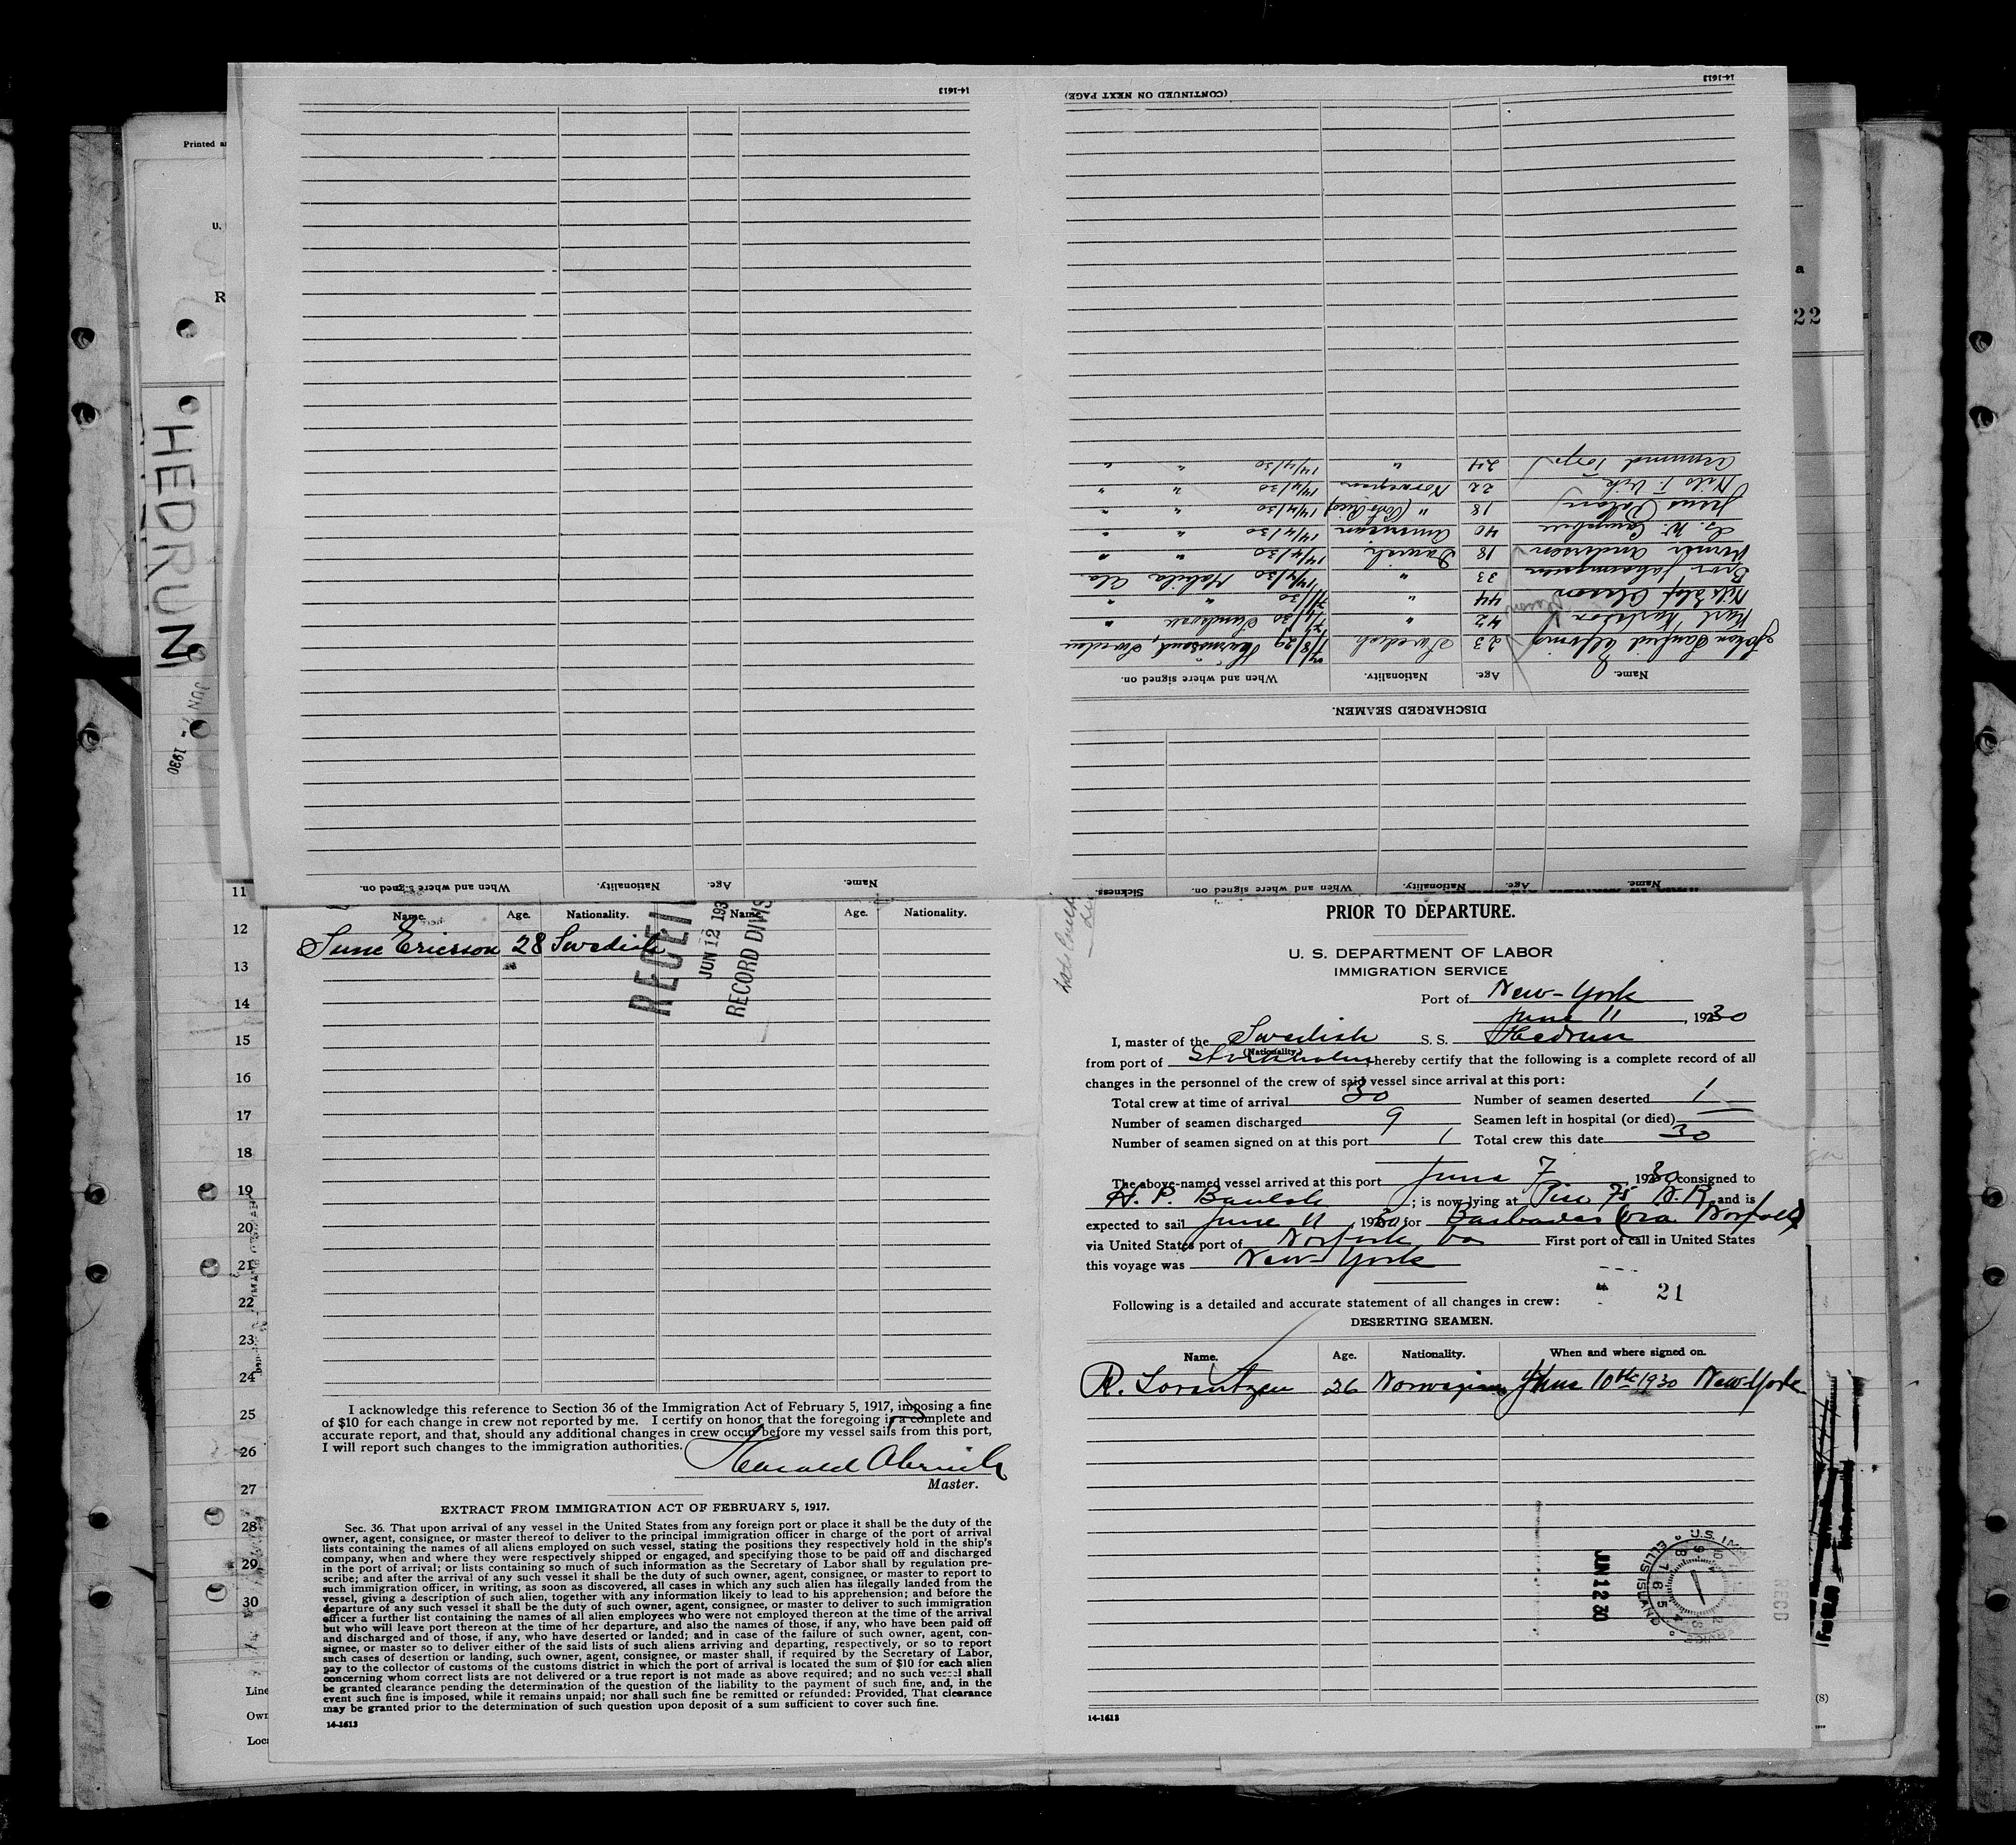 14-1613
14-1613
(CONTINUED ON NEXT PAGE)
Armund 24 " 14/4/30 " "
Nils T. Vik 22 Norwegian 14/4/30 " "
18 " (Porto Rico) 14/4/30 " "
W. Campbell 40 American 14/4/30 " "
Verner Anderson 18 Danish 14/4/30 " "
Bror Johannysson 33 " 14/4/30 Mobile Ala.
Nils Olof Olsson 44 " " "
Karl Karlsson 42 " Sundsvall "
Johan Manfred 23 Swedish Hernosand, Sweden
Name. Age. Nationality. When and where signed on.
DISCHARGED SEAMEN.
Name. Age. Nationality. When and where signed on.
Name. Age. Nationality. When and where signed on. Sickness.
Printed a
U.
R
a
22
HEDRUN
JUN 7 - 1930
11
12
13
14
15
16
17
18
19
20
21
22
23
24
25
26
27
28
29
30
Line
Own
Loca
(8)
Name. Age. Nationality. Name. Age. Nationality.
Sune Ericsson 28 Swedish
RECEIV
JUN 12 193
RECORD DIVIS
I acknowledge this reference to Section 36 of the Immigration Act of February 5, 1917, imposing a fine
of $10 for each change in crew not reported by me. I certify on honor that the foregoing is a complete and
accurate report, and that, should any additional changes in crew occur before my vessel sails from this port,
I will report such changes to the immigration authorities.
Harald
Master.
EXTRACT FROM IMMIGRATION ACT OF FEBRUARY 5, 1917.
Sec. 36. That upon arrival of any vessel in the United States from any foreign port or place it shall be the duty of the
owner, agent, consignee, or master thereof to deliver to the principal immigration officer in charge of the port of arrival
lists containing the names of all aliens employed on such vessel, stating the positions they respectively hold in the ship's
company, when and where they were respectively shipped or engaged, and specifying those to be paid off and discharged
in the port of arrival; or lists containing so much of such information as the Secretary of Labor shall by regulation pre-
scribe; and after the arrival of any such vessel it shall be the duty of such owner, agent, consignee, or master to report to
such immigration officer, in writing, as soon as discovered, all cases in which any such alien has illegally landed from the
vessel, giving a description of such alien, together with any information likely to lead to his apprehension; and before the
departure of any such vessel it shall be the duty of such owner, agent, consignee, or master to deliver to such immigration
officer a further list containing the names of all alien employees who were not employed thereon at the time of the arrival
but who will leave port thereon at the time of her departure, and also the names of those, if any, who have been paid off
and discharged and of those, if any, who have deserted or landed; and in case of the failure of such owner, agent, con-
signee, or master so to deliver either of the said lists of such aliens arriving and departing, respectively, or so to report
such cases of desertion or landing, such owner, agent, consignee, or master shall, if required by the Secretary of Labor,
pay to the collector of customs of the customs district in which the port of arrival is located the sum of $10 for each alien
concerning whom correct lists are not delivered or a true report is not made as above required; and no such vessel shall
be granted clearance pending the determination of the question of the liability to the payment of such fine, and, in the
event such fine is imposed, while it remains unpaid; nor shall such fine be remitted or refunded: Provided, That clearance
may be granted prior to the determination of such question upon deposit of a sum sufficient to cover such fine.
14-1613
PRIOR TO DEPARTURE.
U. S. DEPARTMENT OF LABOR
IMMIGRATION SERVICE
Port of New-York
June 11, 1930
I, master of the Swedish S. S. Hedrun
(Nationality)
from port of Stockholm, hereby certify that the following is a complete record of all
changes in the personnel of the crew of said vessel since arrival at this port:
Total crew at time of arrival 30 Number of seamen deserted 1
Number of seamen discharged 9 Seamen left in hospital (or died) —
Number of seamen signed on at this port 1 Total crew this date 30
The above-named vessel arrived at this port June 7 1930 consigned to
H. P. ; is now lying at Pier 75 N. R. and is
expected to sail June 11, 1930, for Barbados (via Norfolk)
via United States port of Norfolk Va First port of call in United States
this voyage was New-York
21
Following is a detailed and accurate statement of all changes in crew:
DESERTING SEAMEN.
Name. Age. Nationality. When and where signed on.
R. Lorentzen 26 Norwegian June 10th 1930 New-York
JUN 12 30
U.S. IM
ELLIS ISLAND
RECD
14-1613